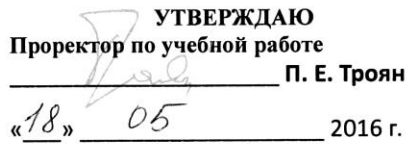 УТВЕРЖДАЮ
Проректор по учебной работе
П. Е. Троян
«18» 05 2016 г.